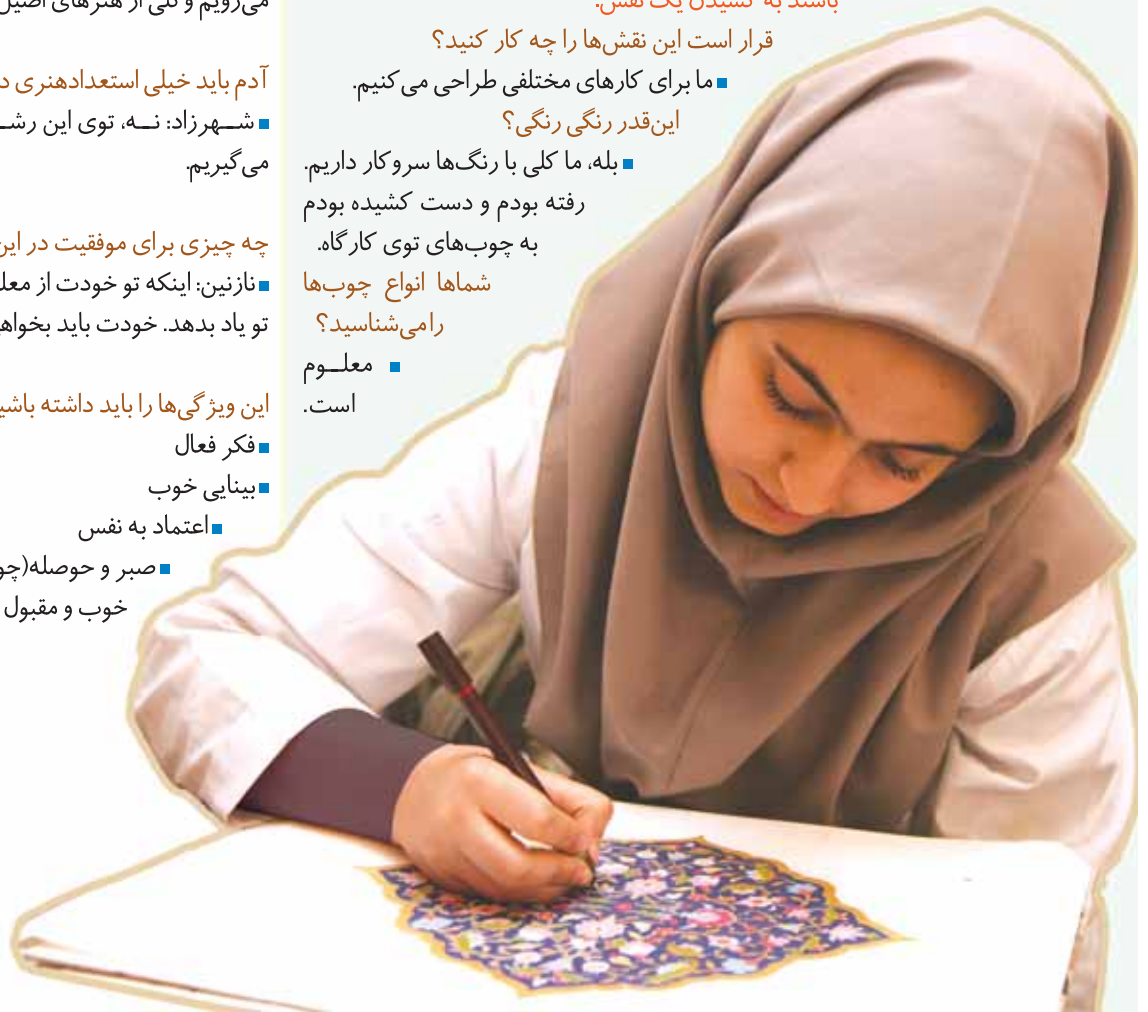 باشند به کشیدن یک نقش.
قرار است این نقش‌ها را چه کار کنید؟
■ ما برای کارهای مختلفی طراحی می‌کنیم.
این‌قدر رنگی رنگی؟
■ بله، ما کلی با رنگ‌ها سروکار داریم.
رفته بودم و دست کشیده بودم
به چوب‌های توی کارگاه.
شماها انواع چوب‌ها
را می‌شناسید؟
■ معلــوم
است.
می‌رویم و کلی از هنرهای اصیل
آدم باید خیلی استعدادهنری
■ شــهرزاد: نــه، توی این
می‌گیریم.
چه چیزی برای موفقیت در این
■ نازنین: اینکه تو خودت از
تو یاد بدهد. خودت باید
این ویژگی‌ها را باید داشته
■ فکر فعال
■ بینایی خوب
■ اعتماد به نفس
■ صبر و حوصله
خوب و مقبول